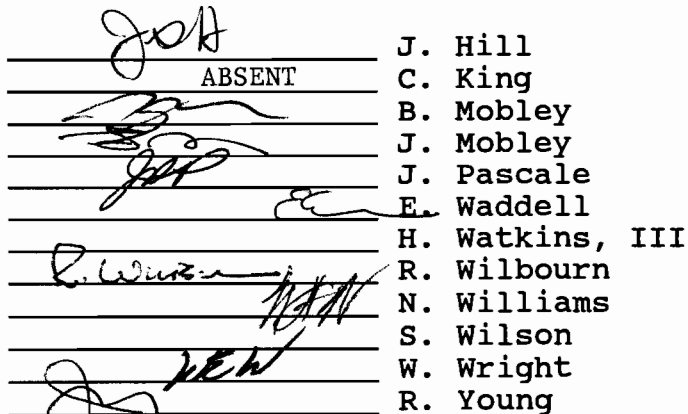 JDH J. Hill
ABSENT C. King
B. Mobley
J. Mobley
J. Pascale
E. Waddell
H. Watkins, III
R. Wilbourn
N. Williams
S. Wilson
W. Wright
R. Young